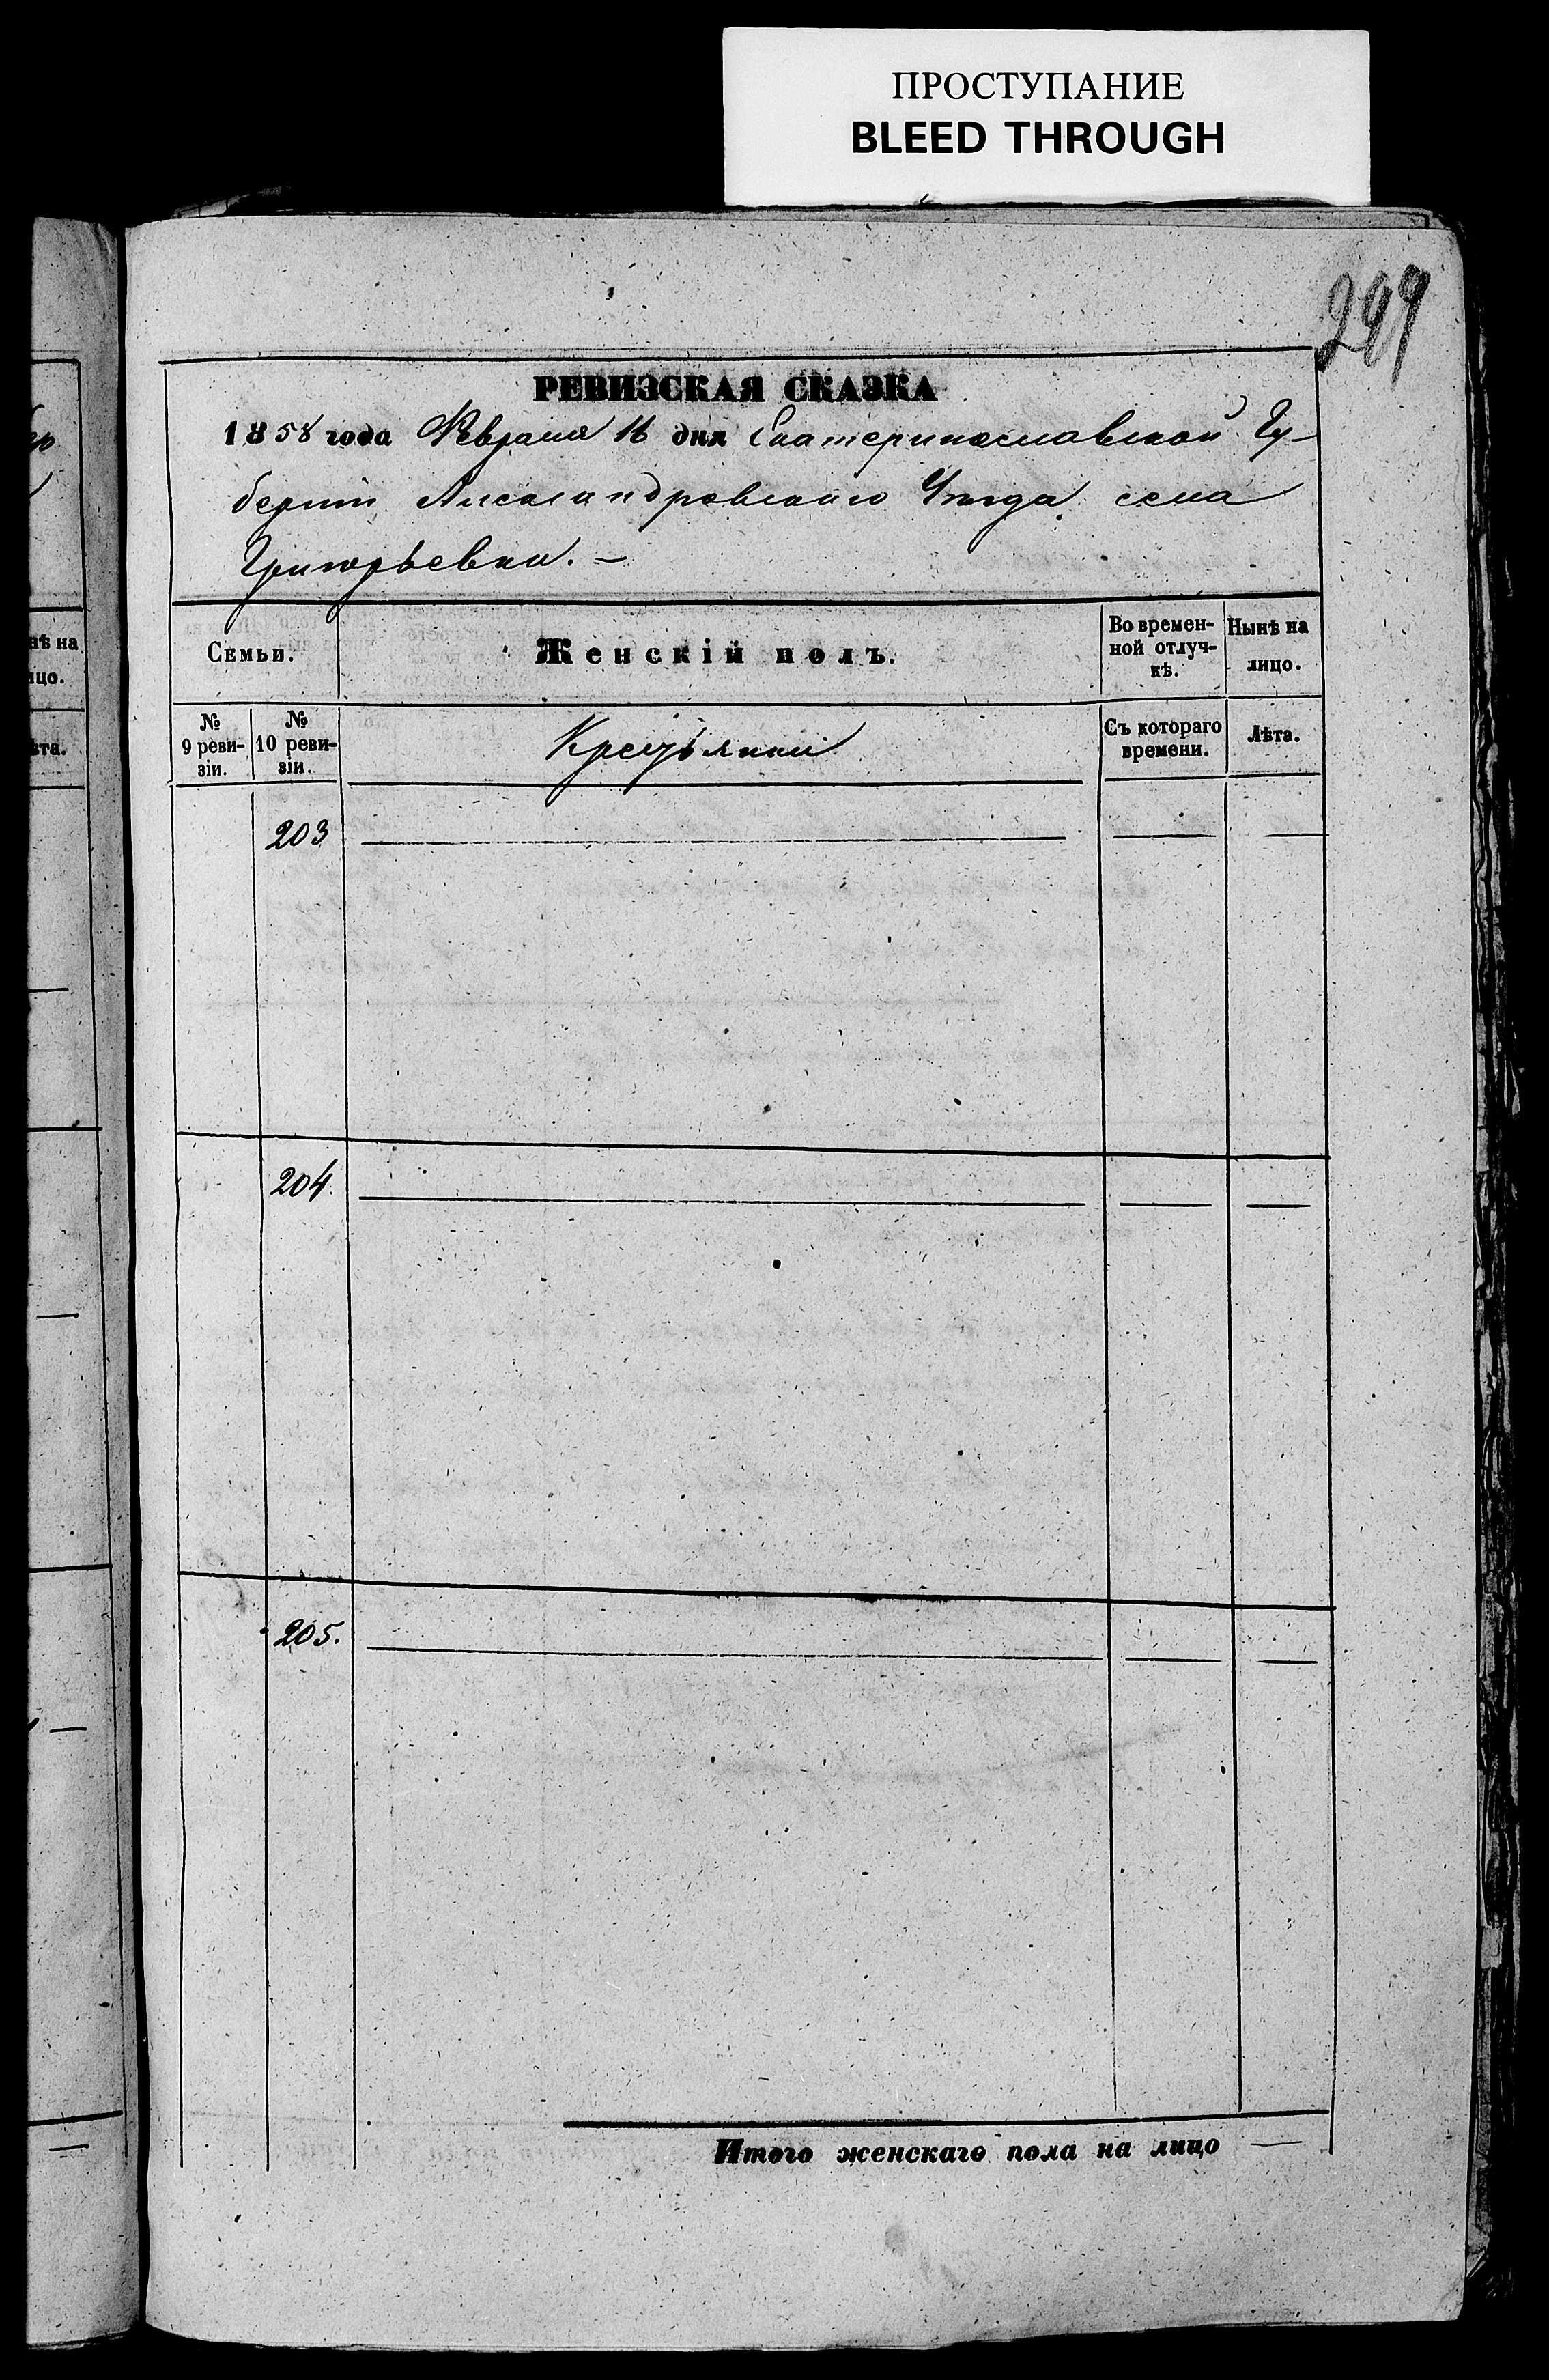 ПРОСТУПАНИЕ
BLEED THROUGH
299
РЕВИЗСКАЯ СКАЗКА
1858 года Февраля 16 дня Екатеринославской Гу-
берніи Александровскаго Уѣзда села
Григорьевки. —
Семьи.
Женскій полъ.
Во времен-
ной отлуч-
кѣ.
Нынѣ на
лицо.
№
9 реви-
зіи.
№
10 реви-
зіи.
Крестьянки
Съ котораго
времени.
Лѣта.
203
204.
205.
Итого женскаго пола на лицо —